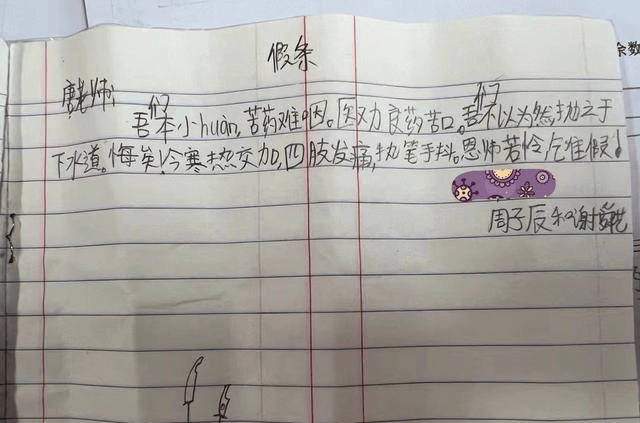 假条
唐老师:
吾们本小huàn,苦药难咽。医劝良药苦口。吾们不以为然抛之于
下水道。悔矣!今寒热交加,四肢发痛,执笔手抖。恩师若怜乞准假!
周子辰和谢
余数